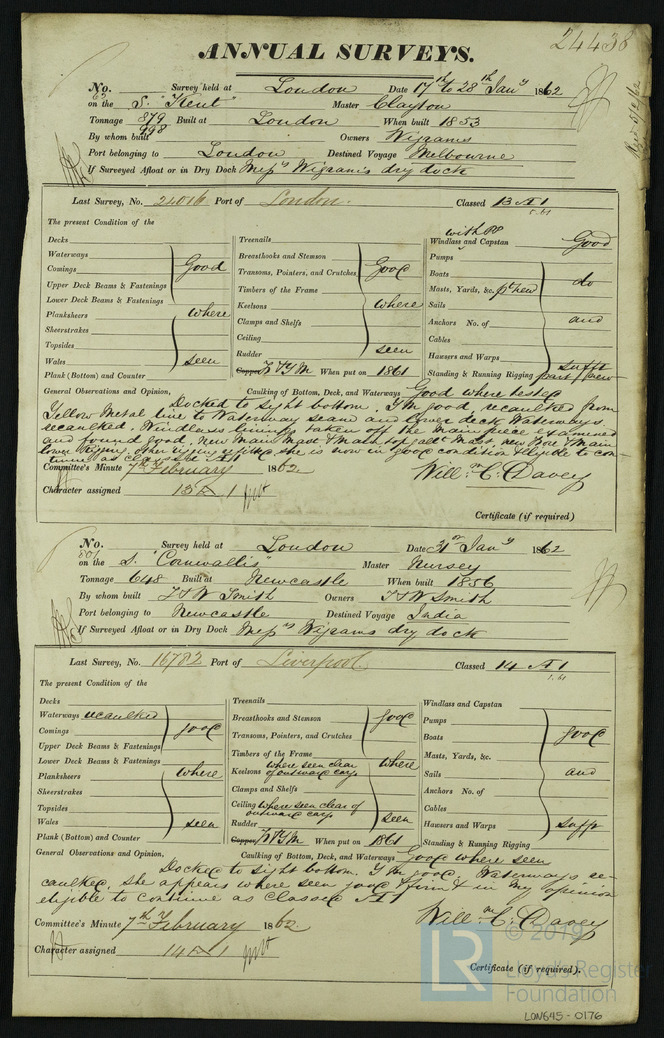 24438
ANNUAL SURVEYS.
No. 62 Survey held at London Date 17th to 28th Jany 1862
on the S. "Kent" Master Clayton
Tonnage 879 998 Built at London When built 1853
By whom built Owners Wigrams
Port belonging to London Destined Voyage Melbourne
If Surveyed Afloat or in Dry Dock Messrs Wigrams dry dock
Last Survey, No. 24016 Port of London. Classed 13 A 1
5.61
The present Condition of the
Decks
Waterways
Comings
Upper Deck Beams & Fastenings
Lower Deck Beams & Fastenings
Planksheers
Sheerstrakes
Topsides
Wales
Plank (Bottom) and Counter
Good
where
seen
Treenails
Breasthooks and Stemson
Transoms, Pointers, and Crutches
Timbers of the Frame
Keelsons
Clamps and Shelfs
Ceiling
Rudder
Copper F&YM When put on 1861
Good
where
seen
Windlass and Capstan Good
Pumps
Boats
Masts, Yards, &c. pt new
Sails
Anchors No. of
Cables
Hawsers and Warps
Standing & Running Rigging part new
do
and
sufft
General Observations and Opinion, Caulking of Bottom, Deck, and Waterways Good where tested
Docked to sight bottom. YM good recaulked from
Yellow Metal line to Waterway seam and lower deck Waterways
recaulked. Windlass lining taken off the main piece examined
and found good. New Main Mast & Main top gallt Mast. new Fore & Main
lower rigging, other rigging refitted she is now in good condition & eligible to con-
tinue as classed A 1
Committee's Minute 7th February 1862.
Will. C. Davey
Character assigned 13 A 1
Certificate (if required)
No. 801 Survey held at London Date 31st Jany 1862
on the S. "Cornwallis" Master Nursey
Tonnage 648 Built at Newcastle When built 1856
By whom built T & W Smith Owners T & W Smith
Port belonging to Newcastle Destined Voyage India
If Surveyed Afloat or in Dry Dock Messrs Wigrams dry dock
Last Survey, No. 16782 Port of Liverpool Classed 14 A 1
1.61
The present Condition of the
Decks
Waterways recaulked
Comings
Upper Deck Beams & Fastenings
Lower Deck Beams & Fastenings
Planksheers
Sheerstrakes
Topsides
Wales
Plank (Bottom) and Counter
good
where
seen
Treenails
Breasthooks and Stemson
Transoms, Pointers, and Crutches
Timbers of the Frame
Keelsons where seen clear of outward cargo
Clamps and Shelfs
Ceiling where seen clear of outward cargo
Rudder
Copper F&YM When put on 1861
good
where
seen
Windlass and Capstan
Pumps
Boats
Masts, Yards, &c.
Sails
Anchors No. of
Cables
Hawsers and Warps
Standing & Running Rigging
good
and
sufft
General Observations and Opinion, Caulking of Bottom, Deck, and Waterways Good where seen
Docked to sight bottom. YM good. Waterways re-
caulked. She appears where seen good & firm & in my opinion
eligible to continue as classed A 1
Committee's Minute 7th February 1862.
Will. C. Davey
Character assigned 14 A 1
Certificate (if required).
LR
© 2019
Lloyd's Register
Foundation
LON645-0176